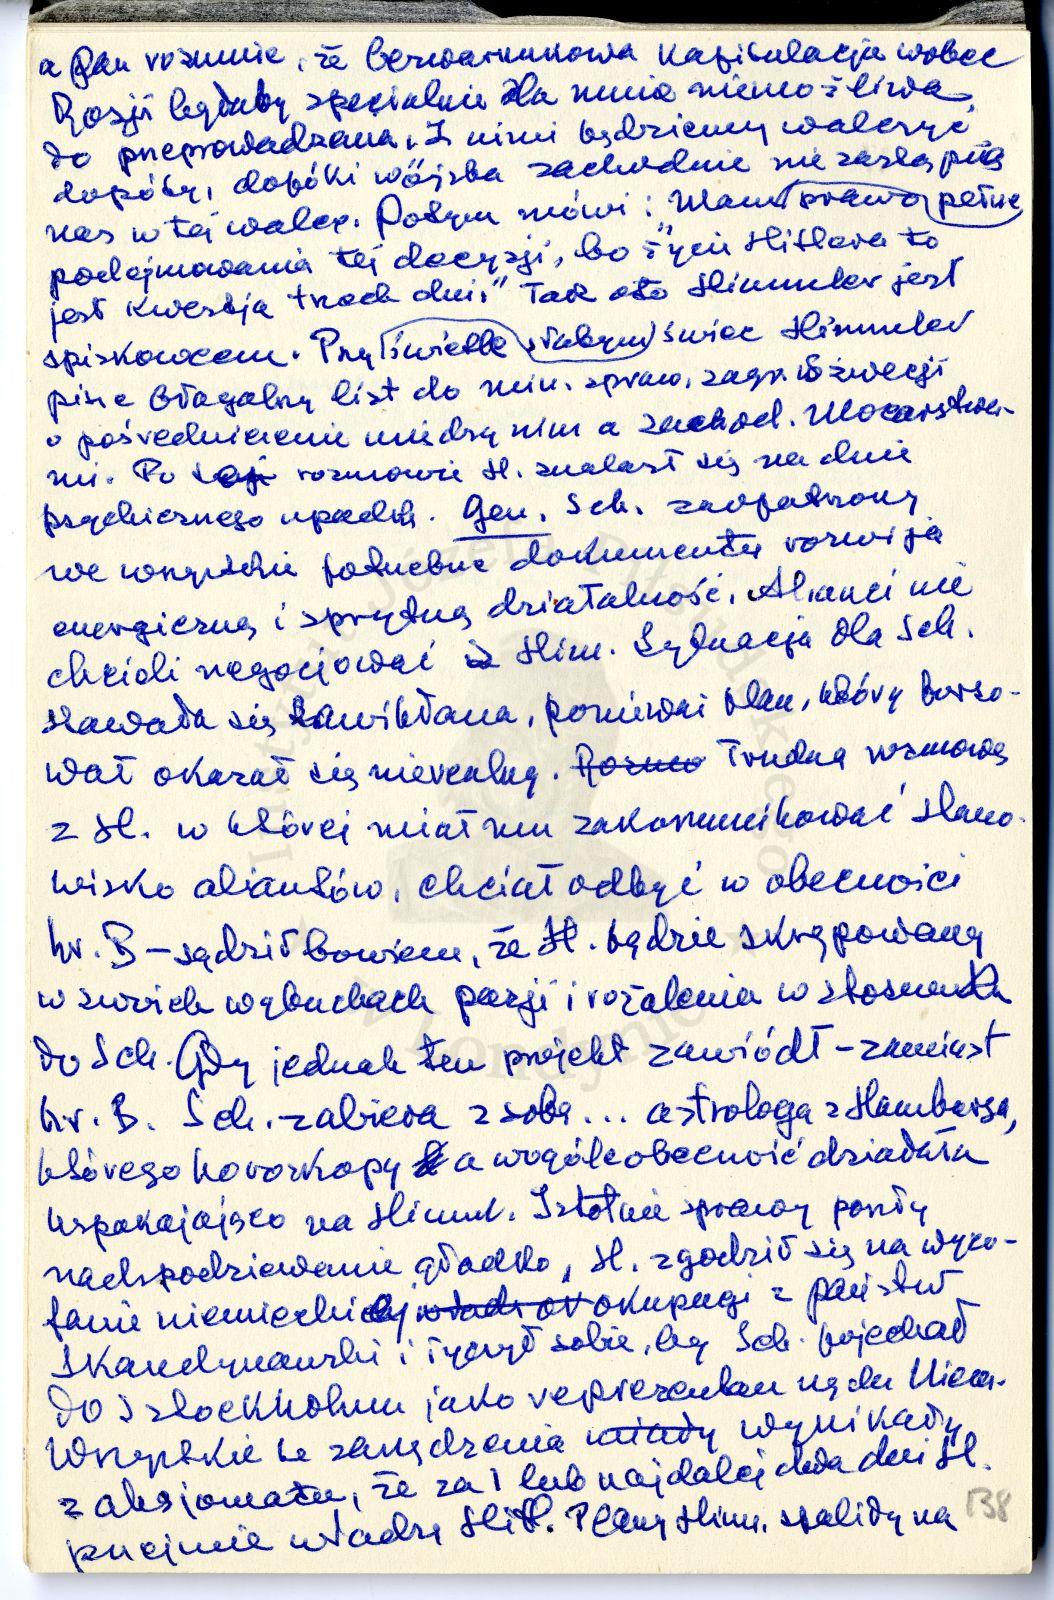 a Pan rozumie, że bezwarunkowa kapitulacja wobec
Rosji byłaby specjalnie dla mnie niemożliwa
do przeprowadzenia. Z nimi będziemy walczyć
dopóty, dopóki wojska zachodnie nie zastąpią
nas w tej walce. Potym mówi: „Mam prawo pełne
podejmowania tej decyzji, bo życie Hitlera to
jest kwestja trzech dni." Tak oto Himmler jest
spiskowcem. Przy świetle słabym świec Himmler
pisze błagalny list do min. spraw. zagr. Szwecji
o pośredniczenie między nim a zachod. Mocarstwa-
mi. Po tej rozmowie H. znalazł się na dnie
psychicznego upadku. Gen. Sch. zaopatrzony
we wszystkie potrzebne dokumenty rozwija
energiczną i sprytną działalność. Alianci nie
chcieli negocjować z Him. Sytuacja dla Sch.
stawała się zawikłana, ponieważ plan, który forso-
wał okazał się nierealny. Rozmo Trudną rozmowę
z H. w której miał mu zakomunikować stano-
wisko aliantów, chciał odbyć w obecności
hr. B – sądził bowiem, że H. będzie skrępowany
w swoich wybuchach pasji i rozżalenia w stosunku
do Sch. Gdy jednak ten projekt zawiódł – zamiast
hr. B. Sch. zabiera z sobą ... astrologa z Hamburga,
którego horoskopy a wogóle obecność działała
uspakajająco na Himml. Istotnie sprawy poszły
nadspodziewanie gładko, H. zgodził się na wyco-
fanie niemieckiej władz ok okupacji z państw
Skandynawski i życzył sobie, by Sch. pojechał
do Sztockholmu jako reprezentan rządu Niem.
Wszystkie te zarządzenia miały wynikały
z aksjomatu, że za 1 lub najdalej dwa dni H.
przejmie władzę Hitl. Plany Himm. spaliły na
138
Instytut Józefa Piłsudskiego
w Londynie